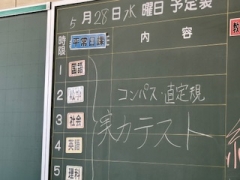 5月28日水曜日 予定表
時限 平常日課 内容
1 国語
2 数学 コンパス・直定規
3 社会 実力テスト
4 英語
5 理科